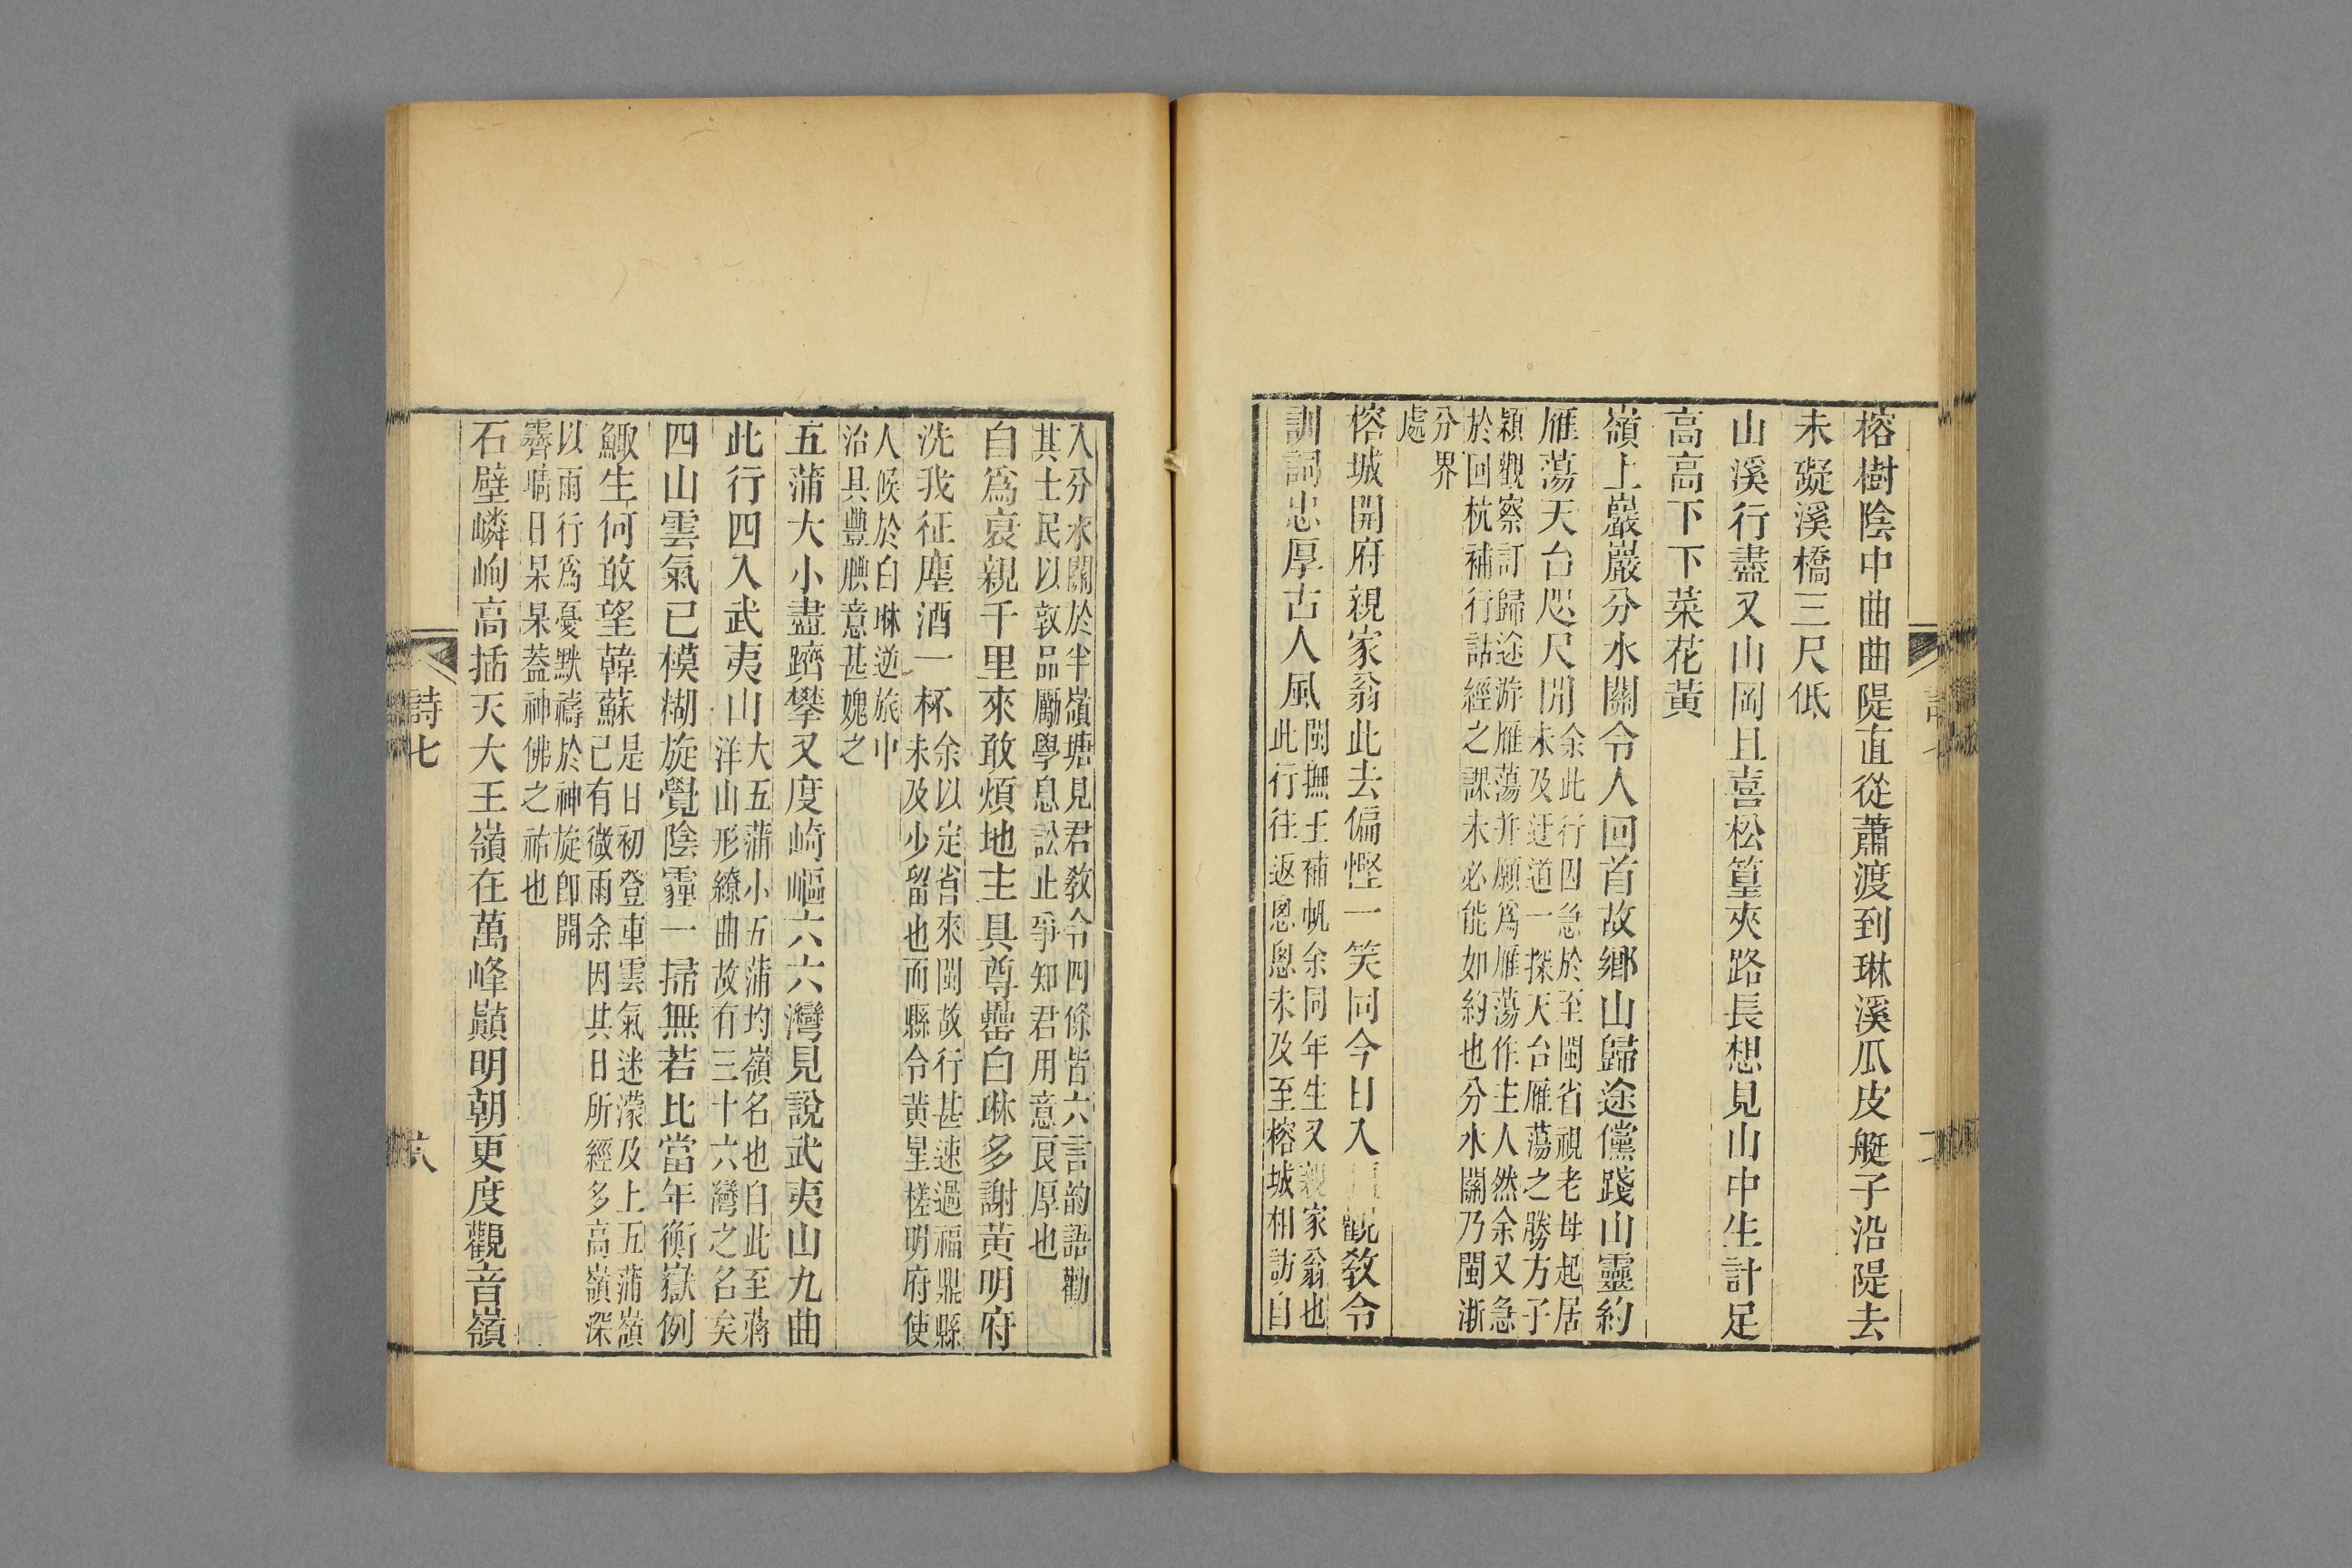 榕樹陰中曲曲隄直從蕭渡到琳溪瓜皮艇子沿隄去
未礙溪橋三尺低
山溪行盡又山岡且喜松篁夾路長想見山中生計足
高高下下菜花黃
嶺上巖巖分水關令人回首故鄉山歸途儻踐山靈約
雁蕩天台咫尺閒
余此行四急於至閩省視老母起居
未及迂道一探天台雁蕩之勝方子
穎觀察訂歸途游雁蕩并願爲雁蕩作主人然余又急
於回杭補行詁經之課未必能如約也分水關乃閩浙
分界
處
榕城開府親家翁此去偏慳一笑同今日入觀敎令
訓詞忠厚古人風
閩撫王補帆余同年生又親家翁也
此行往返悤悤未及至榕城相訪自
入分水關於半嶺塘見君敎令四條皆六言韵語勸
其士民以敦品勵學息訟止爭知君用意良厚也
自爲衰親千里來敢煩地主具尊罍白琳多謝黃明府
洗我征塵酒一杯
余以定省來閩故行甚速過福鼎縣
未及少留也而縣令黃星槎明府使
人候於白琳逆旅中
治具豐腆意甚媿之
五蒲大小盡躋攀又度崎嶇六六灣見說武夷山九曲
此行四入武夷山
大五蒲小五蒲均嶺名也自此至蔣
洋山形繚曲故有三十六灣之名矣
四山雲氣已模糊旋覺陰霾一掃無若比當年衡嶽例
鯫生何敢望韓蘇
是日初登車雲氣迷濛及上五蒲嶺
已有微雨余因其日所經多高嶺深
以雨行爲憂默禱於神旋卽開
霽晴日杲杲蓋神佛之祐也
石壁嶙峋高插天大王嶺在萬峰巔明朝更度觀音嶺
詩七